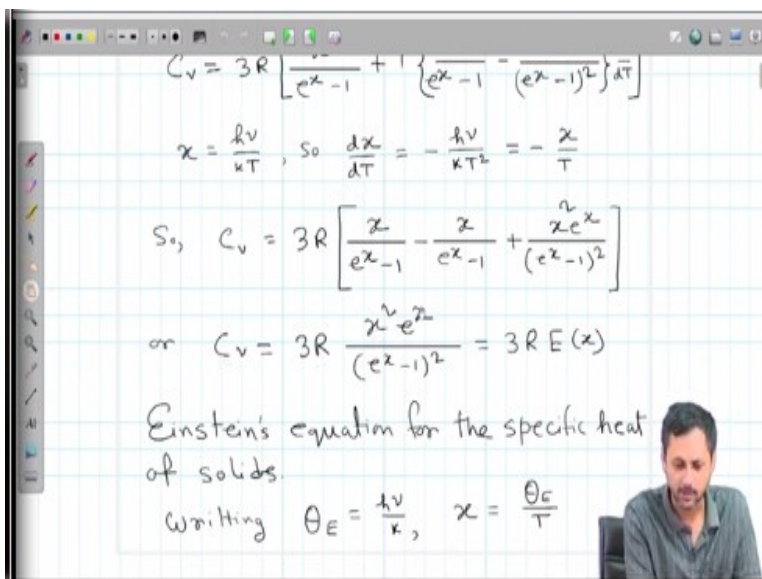 C_v = 3R [ x/(e^x - 1) + T { 1/(e^x - 1) - x e^x/(e^x - 1)^2 } dx/dT ]
x = hν/kT , so dx/dT = - hν/kT^2 = - x/T
So, C_v = 3R [ x/(e^x - 1) - x/(e^x - 1) + x^2 e^x/(e^x - 1)^2 ]
or C_v = 3R x^2 e^x/(e^x - 1)^2 = 3R E(x)
Einstein's equation for the specific heat
of solids.
Writting θ_E = hν/k, x = θ_E/T